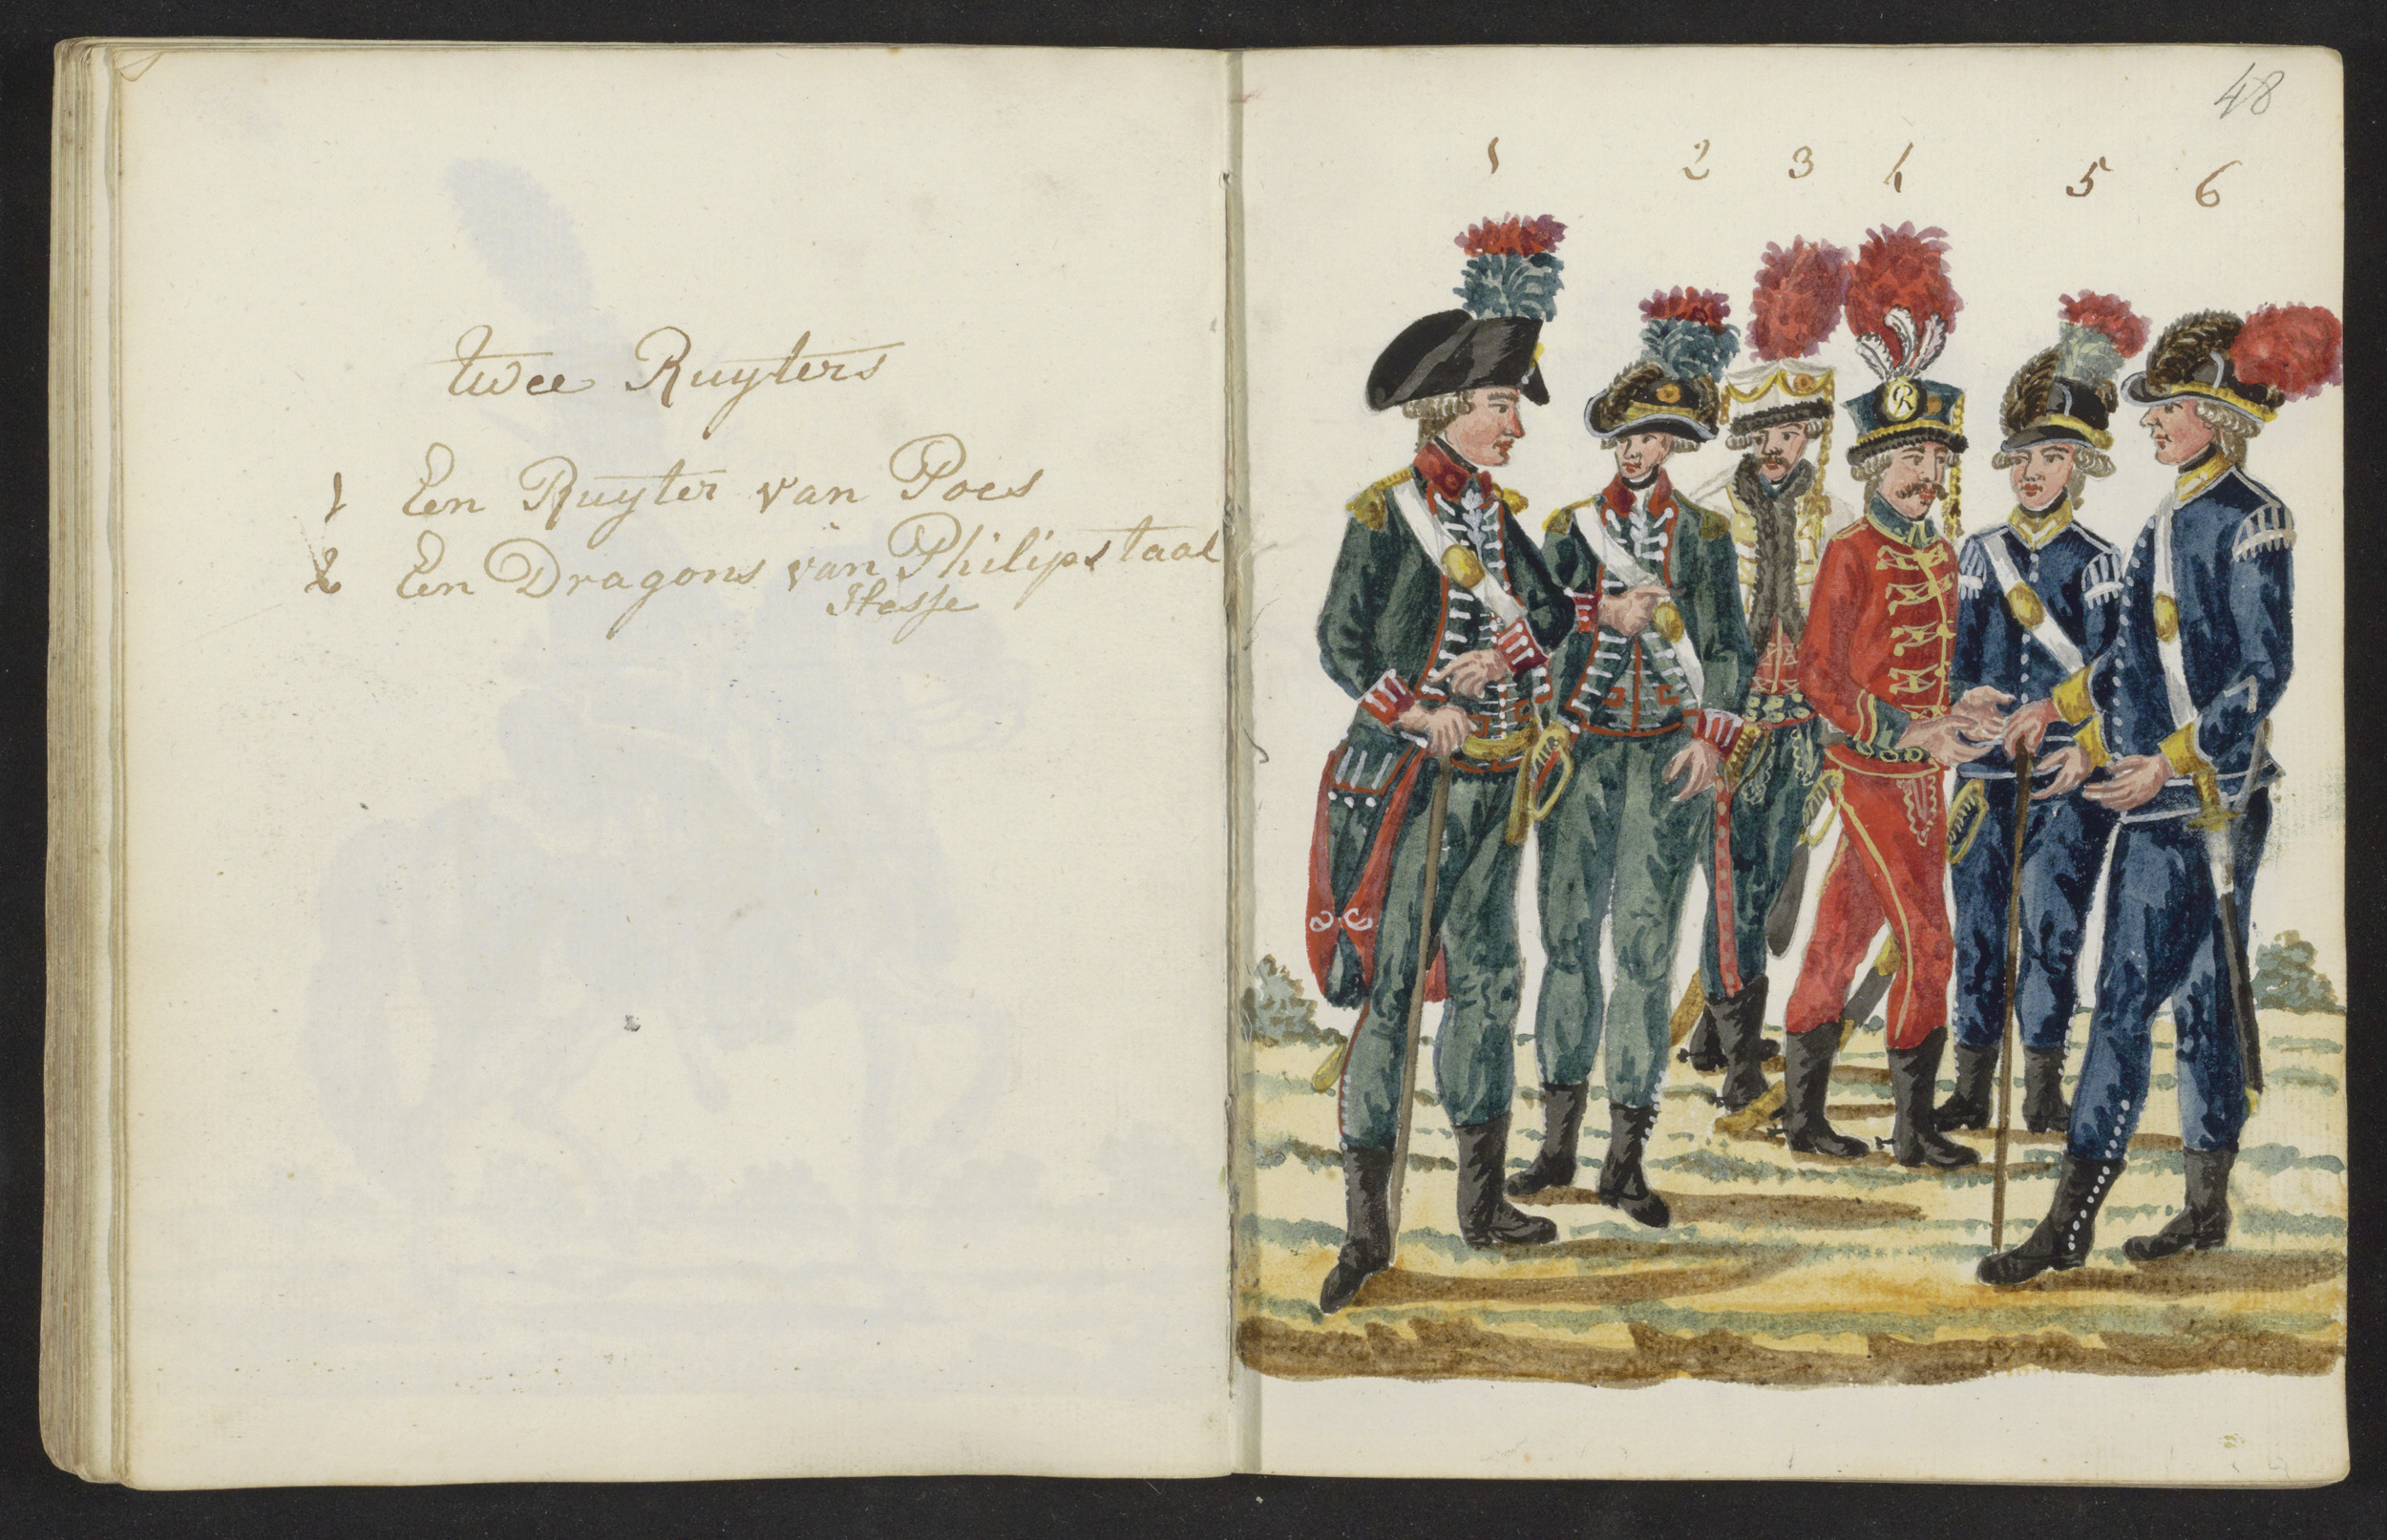 twee Ruyters
1 Een Ruyter van Poes
2 Een Dragons van Philipstaal
Hesse
48
1 2 3 4 5 6
CR